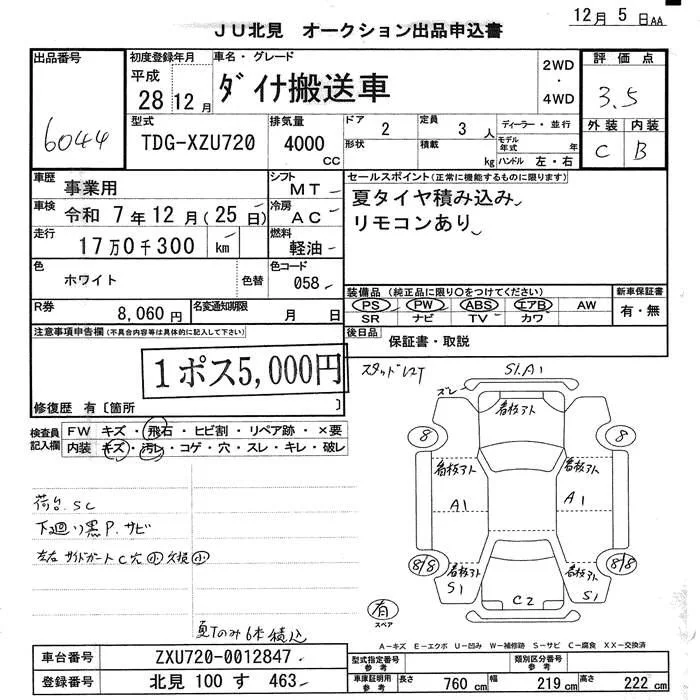 12月 5日AA
JU北見 オークション出品申込書
出品番号
6044
初度登録年月
平成
28 12月
車名・グレード
ダイナ搬送車
2WD
・
4WD
評価点
3.5
外装 内装
C B
型式
TDG-XZU720
排気量
4000
CC
ドア
2
形状
定員
3人
積載
kg
ディーラー・並行
モデル年式
年
ハンドル 左・右
車歴
事業用
シフト
MT
車検
令和 7年 12月(25日)
冷房
AC
走行
17万0千300 km
燃料
軽油
色
ホワイト
色替
色コード
058
R券
8,060円
名変通知期限
月 日
セールスポイント(正常に機能するものに限ります)
夏タイヤ積み込み
リモコンあり
装備品(純正品に限り○をつけてください)
PS PW ABS エアB AW
SR ナビ TV カワ
新車保証書
有・無
後日品
保証書・取説
注意事項申告欄(不具合内容等は具体的に記入して下さい)
1ポス5,000円
修復歴 有〔箇所 〕
検査員記入欄
FW キズ・飛石・ヒビ割・リペア跡・×要
内装 キズ・汚レ・コゲ・穴・スレ・キレ・破レ
荷台SC
下廻り黒P.サビ
左右サイドガードC穴小欠損小
夏Tのみ6本積込
スタッドレスT
ズレ
S1.A1
看板アト
8
8
看板アト
看板アト
A1
A1
8/8
8/8
看板アト
看板アト
S1
S1
C2
有
スペア
A-キズ E-エクボ U-凹み W-補修跡 S-サビ C-腐食 XX-交換済
車台番号
ZXU720-0012847
登録番号
北見 100 す 463
型式指定番号
参考
類別区分番号
参考
車庫証明用
参考
長さ
760 cm
幅
219 cm
高さ
222 cm